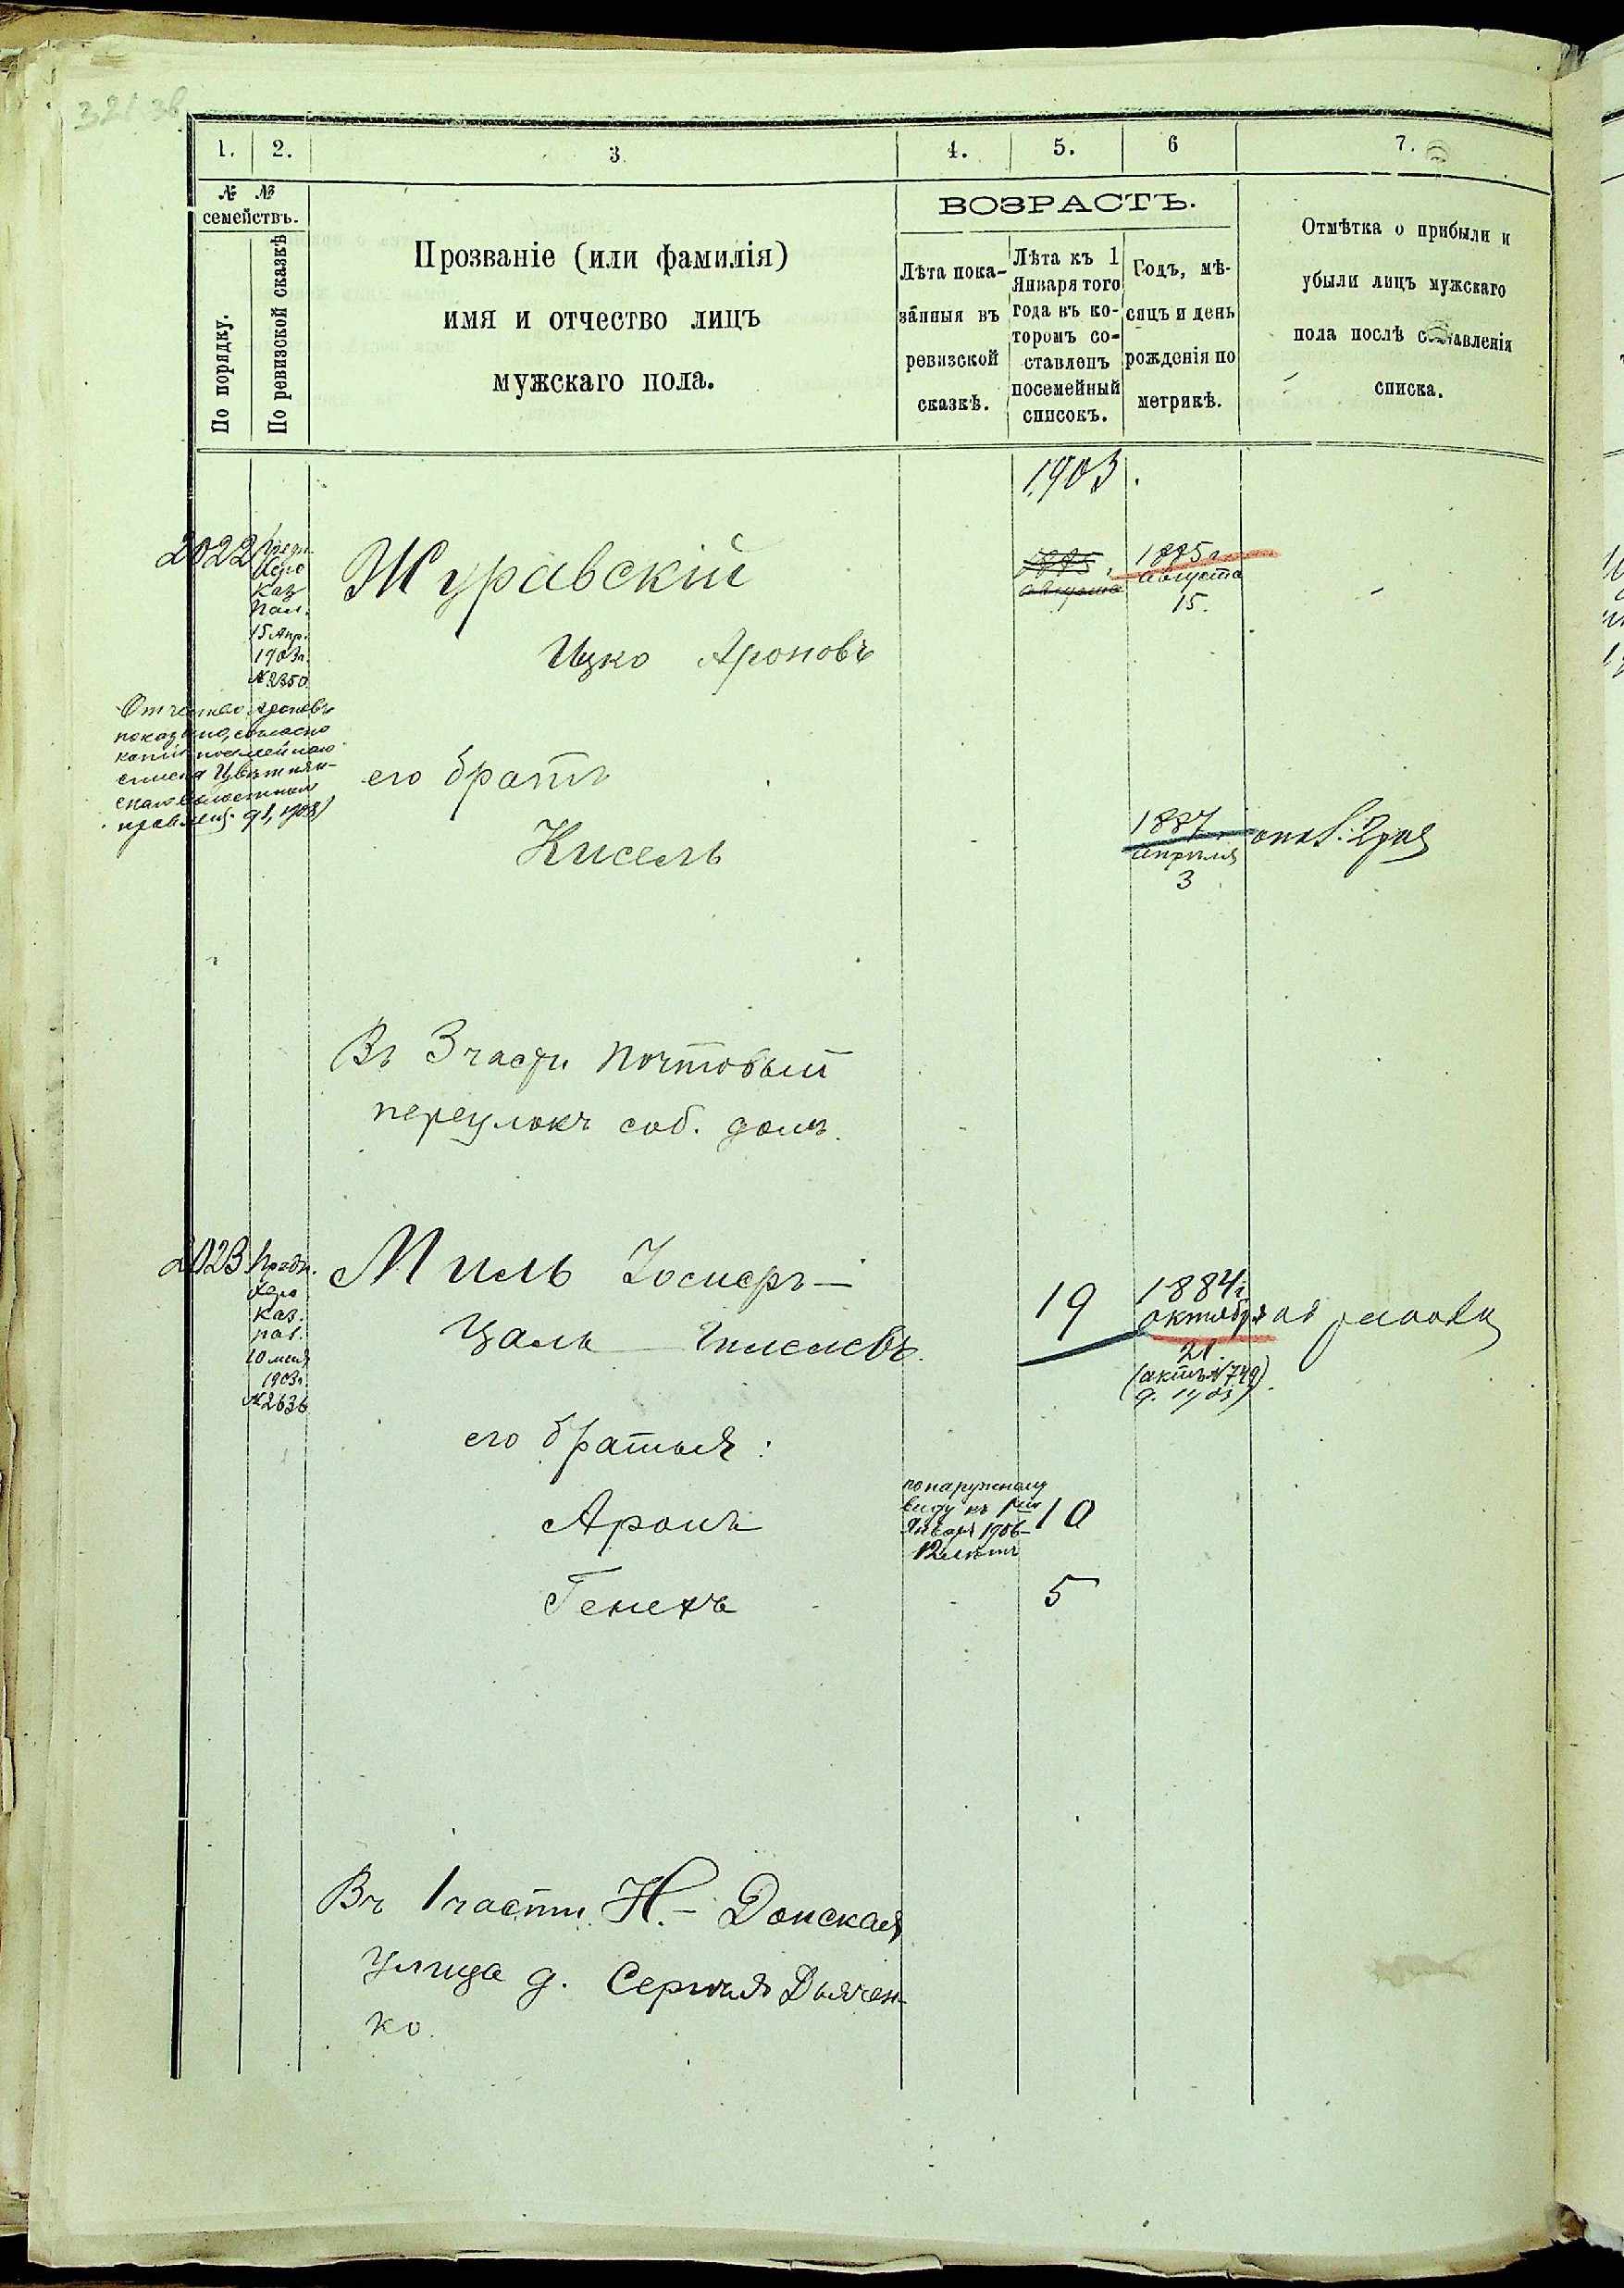 321 зв
1. 2. 3 4. 5. 6 7.
№ №
семействъ.
По порядку.
По ревизской сказкѣ
Прозваніе (или фамилія)
имя и отчество лицъ
мужскаго пола.
ВОЗРАСТЪ.
Лѣта пока-
занныя въ
ревизской
сказкѣ.
Лѣта къ 1
Января того
года въ ко-
торомъ со-
ставленъ
посемейный
списокъ.
Годъ, мѣ-
сяцъ и день
рожденія по
метрикѣ.
Отмѣтка о прибыли и
убыли лицъ мужскаго
пола послѣ составленія
списка.
1903.
2022
Предп.
Херс
Каз
Пал.
15 Апр.
1903г.
№ 2350
Журавскій
Ицко Ароновъ
1885
августа
1885 г
августа
15.
Отчество Ароновъ
показано, согласно
копіи посемейнаго
списка
его братъ
Кисель
1887
апрѣля
3
Въ 3 части Почтовый
переулокъ соб. домъ.
2023
Предп.
Херс
Каз.
Пал.
20 мая
1903г.
№ 2636
Миль Іосперъ-
Цаль
19
1884 г.
октября
21.
(актъ № 749)
его братья:
Аронъ
по наружному
виду къ
Января 1906-
12 лѣтъ
10
Генехъ
5
Въ 1 части Н.- Донская
улица д. Сергѣя Дьячен-
ко.